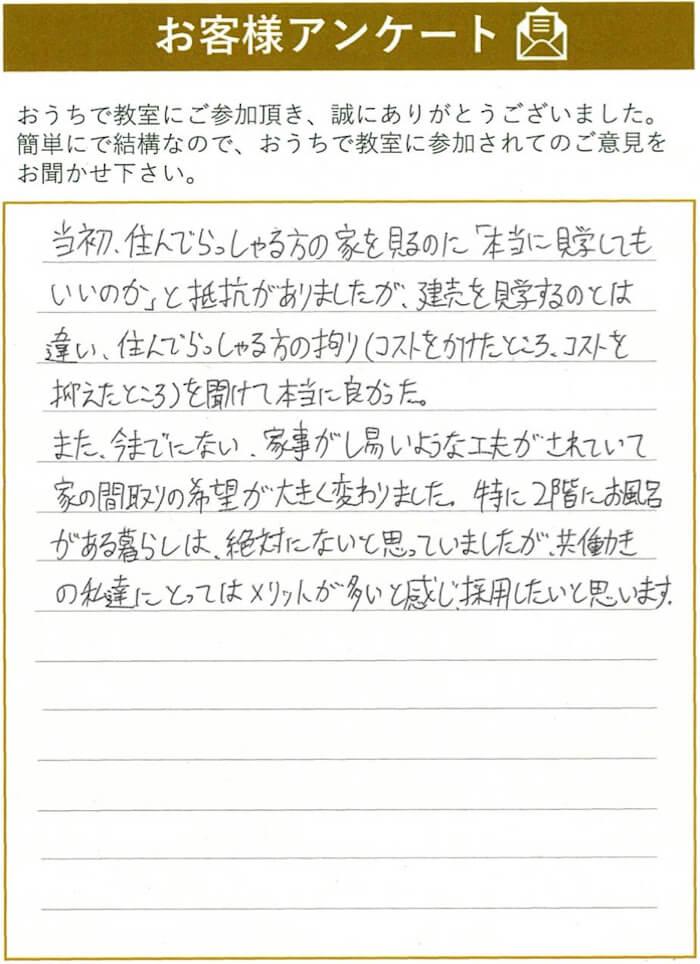 お客様アンケート
おうちで教室にご参加頂き、誠にありがとうございました。
簡単にで結構なので、おうちで教室に参加されてのご意見を
お聞かせ下さい。
当初、住んでらっしゃる方の家を見るのに「本当に見学しても
いいのか」と抵抗がありましたが、建売を見学するのとは
違い、住んでらっしゃる方の拘り(コストをかけたところ、コストを
抑えたところ)を聞けて本当に良かった。
また、今までにない、家事がし易いような工夫がされていて
家の間取りの希望が大きく変わりました。特に2階にお風呂
がある暮らしは、絶対にないと思っていましたが、共働き
の私達にとってはメリットが多いと感じ、採用したいと思います.